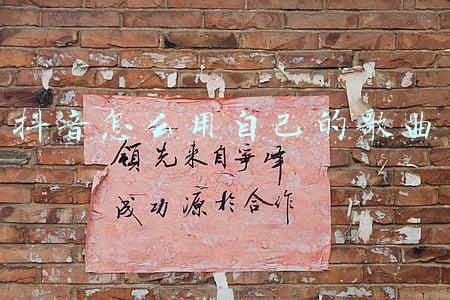 抖音怎么用自己的歌曲
领先来自争峰
成功源於合作